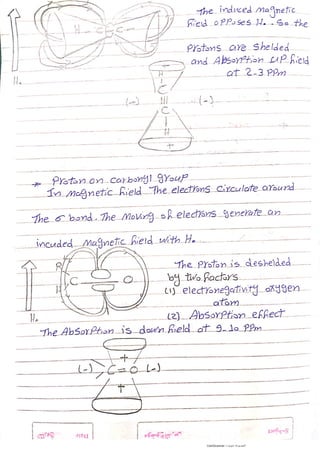 The induced magnetic
field opposes H₀. So the
Protons are shelded
and Absorption UP field
at 2-3 PPm
H-C≡C
H₀
H
C
(-) ||| (-)
C
H
+
* Proton on carbonyl group
In magnetic field The electrons circulate around
The σ bond. The moving of electrons generate an
incuded magnetic field with H₀
The Proton is deshelded
by two factors
(1) electronegativity oxygen
atom
(2) Absorption effect
R
H
C O
H₀
The Absorption is down field at 9-10 PPm
+
(-) C=O (-)
+
CamScanner